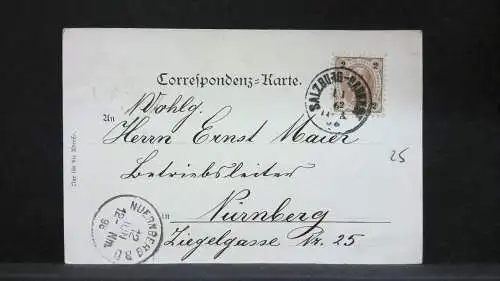 Correspondenz-Karte.
2 2
SALZBURG-BAHNHOF
Wohlg.
An
Herrn Ernst Maier
Betriebsleiter
in
Nürnberg
Ziegelgasse Nr. 25
25
Nur für die Adresse.
NUERNBERG
12
JUN
12-
Nm.
98